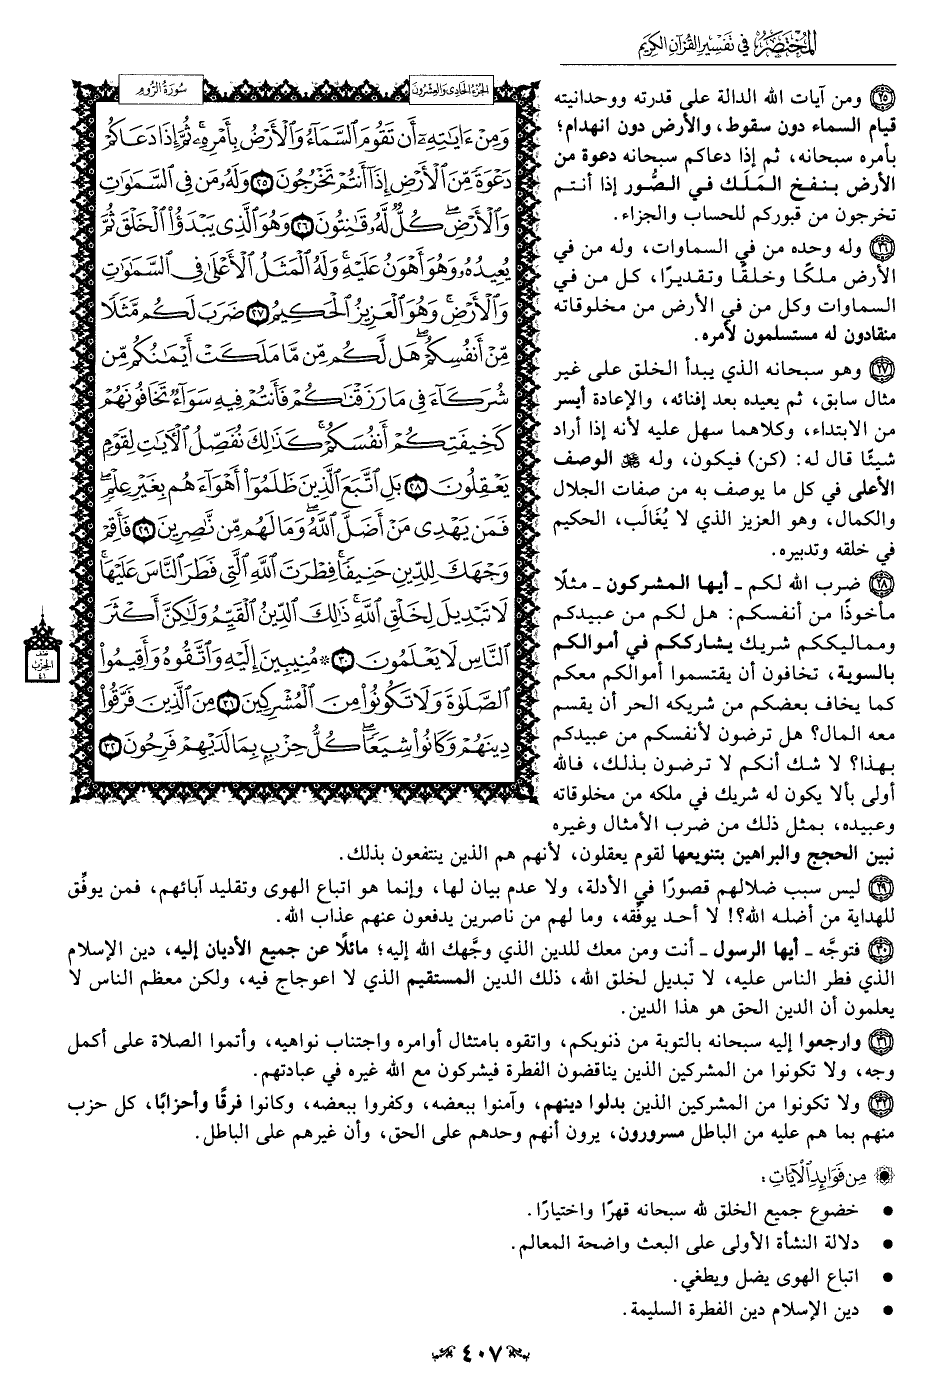 المُخْتَصَرُ في تفسير القرآن الكريم
الجزء الحادي والعشرون
سورة الروم
وَمِنْ ءَايَٰتِهِۦٓ أَن تَقُومَ ٱلسَّمَآءُ وَٱلْأَرْضُ بِأَمْرِهِۦ ۚ ثُمَّ إِذَا دَعَاكُمْ
دَعْوَةً مِّنَ ٱلْأَرْضِ إِذَآ أَنتُمْ تَخْرُجُونَ ٢٥ وَلَهُۥ مَن فِى ٱلسَّمَٰوَٰتِ
وَٱلْأَرْضِ ۖ كُلٌّ لَّهُۥ قَٰنِتُونَ ٢٦ وَهُوَ ٱلَّذِى يَبْدَؤُا۟ ٱلْخَلْقَ ثُمَّ
يُعِيدُهُۥ وَهُوَ أَهْوَنُ عَلَيْهِ ۚ وَلَهُ ٱلْمَثَلُ ٱلْأَعْلَىٰ فِى ٱلسَّمَٰوَٰتِ
وَٱلْأَرْضِ ۚ وَهُوَ ٱلْعَزِيزُ ٱلْحَكِيمُ ٢٧ ضَرَبَ لَكُم مَّثَلًا
مِّنْ أَنفُسِكُمْ ۖ هَل لَّكُم مِّن مَّا مَلَكَتْ أَيْمَٰنُكُم مِّن
شُرَكَآءَ فِى مَا رَزَقْنَٰكُمْ فَأَنتُمْ فِيهِ سَوَآءٌ تَخَافُونَهُمْ
كَخِيفَتِكُمْ أَنفُسَكُمْ ۚ كَذَٰلِكَ نُفَصِّلُ ٱلْـَٔايَٰتِ لِقَوْمٍ
يَعْقِلُونَ ٢٨ بَلِ ٱتَّبَعَ ٱلَّذِينَ ظَلَمُوٓا۟ أَهْوَآءَهُم بِغَيْرِ عِلْمٍ ۖ
فَمَن يَهْدِى مَنْ أَضَلَّ ٱللَّهُ ۖ وَمَا لَهُم مِّن نَّٰصِرِينَ ٢٩ فَأَقِمْ
وَجْهَكَ لِلدِّينِ حَنِيفًا ۚ فِطْرَتَ ٱللَّهِ ٱلَّتِى فَطَرَ ٱلنَّاسَ عَلَيْهَا ۚ
لَا تَبْدِيلَ لِخَلْقِ ٱللَّهِ ۚ ذَٰلِكَ ٱلدِّينُ ٱلْقَيِّمُ وَلَٰكِنَّ أَكْثَرَ
ٱلنَّاسِ لَا يَعْلَمُونَ ٣٠ ۞ مُنِيبِينَ إِلَيْهِ وَٱتَّقُوهُ وَأَقِيمُوا۟
ٱلصَّلَوٰةَ وَلَا تَكُونُوا۟ مِنَ ٱلْمُشْرِكِينَ ٣١ مِنَ ٱلَّذِينَ فَرَّقُوا۟
دِينَهُمْ وَكَانُوا۟ شِيَعًا ۖ كُلُّ حِزْبٍۭ بِمَا لَدَيْهِمْ فَرِحُونَ ٣٢
نصف
الحزب
٤١
٢٥ ومن آيات الله الدالة على قدرته ووحدانيته
قيام السماء دون سقوط، والأرض دون انهدام؛
بأمره سبحانه، ثم إذا دعاكم سبحانه دعوة من
الأرض بنفخ المَلَك في الصُّور إذا أنتم
تخرجون من قبوركم للحساب والجزاء.
٢٦ وله وحده من في السماوات، وله من في
الأرض ملكًا وخلقًا وتقديرًا، كل من في
السماوات وكل من في الأرض من مخلوقاته
منقادون له مستسلمون لأمره.
٢٧ وهو سبحانه الذي يبدأ الخلق على غير
مثال سابق، ثم يعيده بعد إفنائه، والإعادة أيسر
من الابتداء، وكلاهما سهل عليه لأنه إذا أراد
شيئًا قال له: (كن) فيكون، وله ﷻ الوصف
الأعلى في كل ما يوصف به من صفات الجلال
والكمال، وهو العزيز الذي لا يُغَالَب، الحكيم
في خلقه وتدبيره.
٢٨ ضرب الله لكم ـ أيها المشركون ـ مثلًا
مأخوذًا من أنفسكم: هل لكم من عبيدكم
ومماليككم شريك يشارككم في أموالكم
بالسوية، تخافون أن يقتسموا أموالكم معكم
كما يخاف بعضكم من شريكه الحر أن يقسم
معه المال؟ هل ترضون لأنفسكم من عبيدكم
بهذا؟ لا شك أنكم لا ترضون بذلك، فالله
أولى بألا يكون له شريك في ملكه من مخلوقاته
وعبيده، بمثل ذلك من ضرب الأمثال وغيره
نبين الحجج والبراهين بتنويعها لقوم يعقلون، لأنهم هم الذين ينتفعون بذلك.
٢٩ ليس سبب ضلالهم قصورًا في الأدلة، ولا عدم بيان لها، وإنما هو اتباع الهوى وتقليد آبائهم، فمن يوفِّق
للهداية من أضله الله؟! لا أحد يوفّقه، وما لهم من ناصرين يدفعون عنهم عذاب الله.
٣٠ فتوجَّه ـ أيها الرسول ـ أنت ومن معك للدين الذي وجَّهك الله إليه؛ مائلًا عن جميع الأديان إليه، دين الإسلام
الذي فطر الناس عليه، لا تبديل لخلق الله، ذلك الدين المستقيم الذي لا اعوجاج فيه، ولكن معظم الناس لا
يعلمون أن الدين الحق هو هذا الدين.
٣١ وارجعوا إليه سبحانه بالتوبة من ذنوبكم، واتقوه بامتثال أوامره واجتناب نواهيه، وأتموا الصلاة على أكمل
وجه، ولا تكونوا من المشركين الذين يناقضون الفطرة فيشركون مع الله غيره في عبادتهم.
٣٢ ولا تكونوا من المشركين الذين بدلوا دينهم، وآمنوا ببعضه، وكفروا ببعضه، وكانوا فرقًا وأحزابًا، كل حزب
منهم بما هم عليه من الباطل مسرورون، يرون أنهم وحدهم على الحق، وأن غيرهم على الباطل.
من فوائد الآيات:
• خضوع جميع الخلق لله سبحانه قهرًا واختيارًا.
• دلالة النشأة الأولى على البعث واضحة المعالم.
• اتباع الهوى يضل ويطغي.
• دين الإسلام دين الفطرة السليمة.
٤٠٧